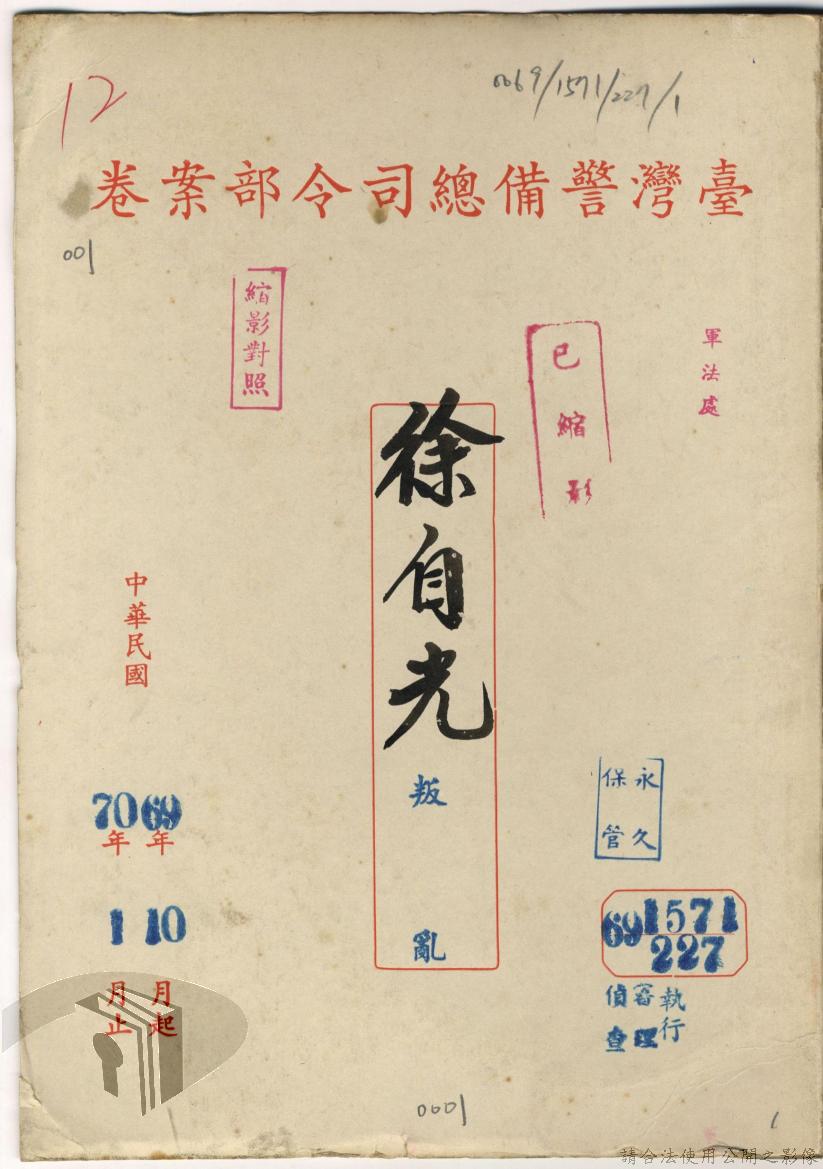 12
0069/1571/227/1
臺灣警備總司令部案卷
001
軍法處
已縮影
縮影對照
徐自光
叛亂
中華民國
69年10月起
70年1月止
永久
保管
69 1571
227
執行
審理
偵查
0001
1
請合法使用公開之影像